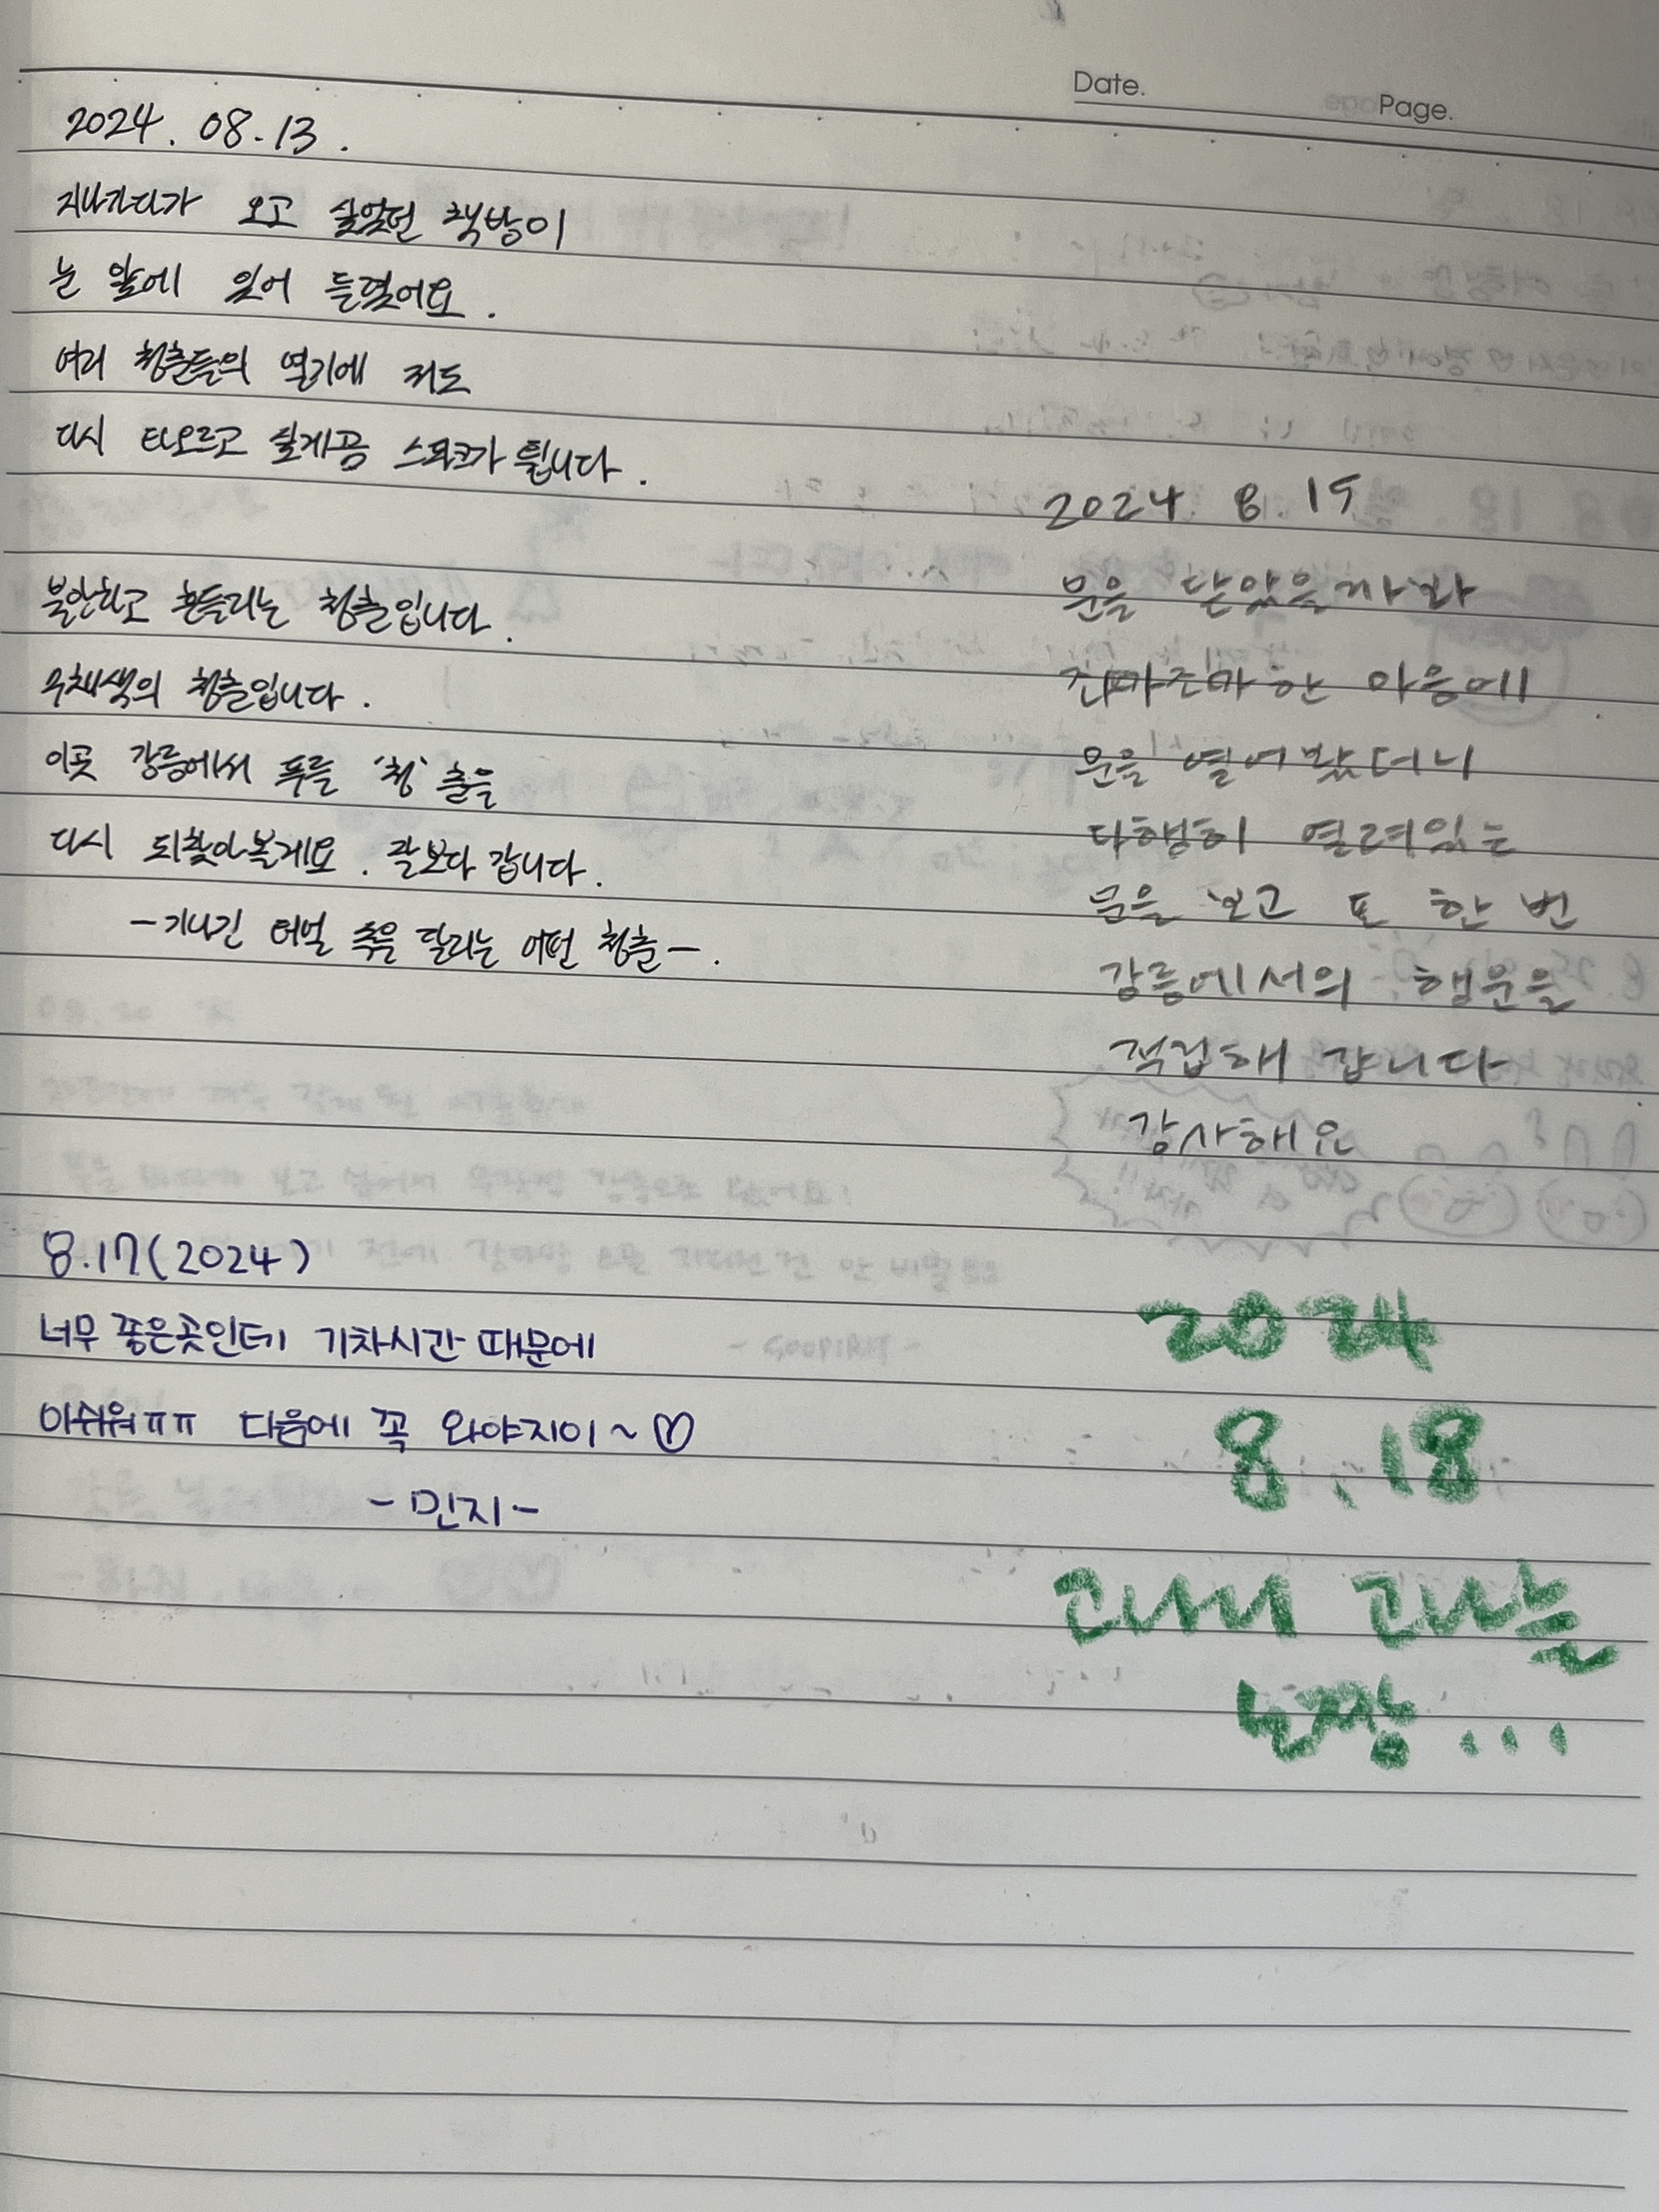 Date. Page.
2024. 08. 13.
지나가다가 오고 싶었던 책방이
눈 앞에 있어 들렸어요.
여러 청춘들의 열기에 저도
다시 타오르고 싶게끔 스파크가 튑니다.
불안하고 흔들리는 청춘입니다.
무채색의 청춘입니다.
이곳 강릉에서 푸를 '청' 춘을
다시 되찾아볼게요. 잘 보다 갑니다.
-기나긴 터널 속을 달리는 어떤 청춘-.
8.17(2024)
너무 좋은곳인데 기차시간 때문에
아쉬워ㅠㅠ 다음에 꼭 와야지이~♡
-민지-
2024. 8. 19
문을 닫았을까봐
조마조마한 마음에
문을 열어봤더니
다행히 열려있는
문을 보고 또 한 번
강릉에서의 행운을
적립해 갑니다
감사해요
2024
8.18
고사리 고사는
노짱...